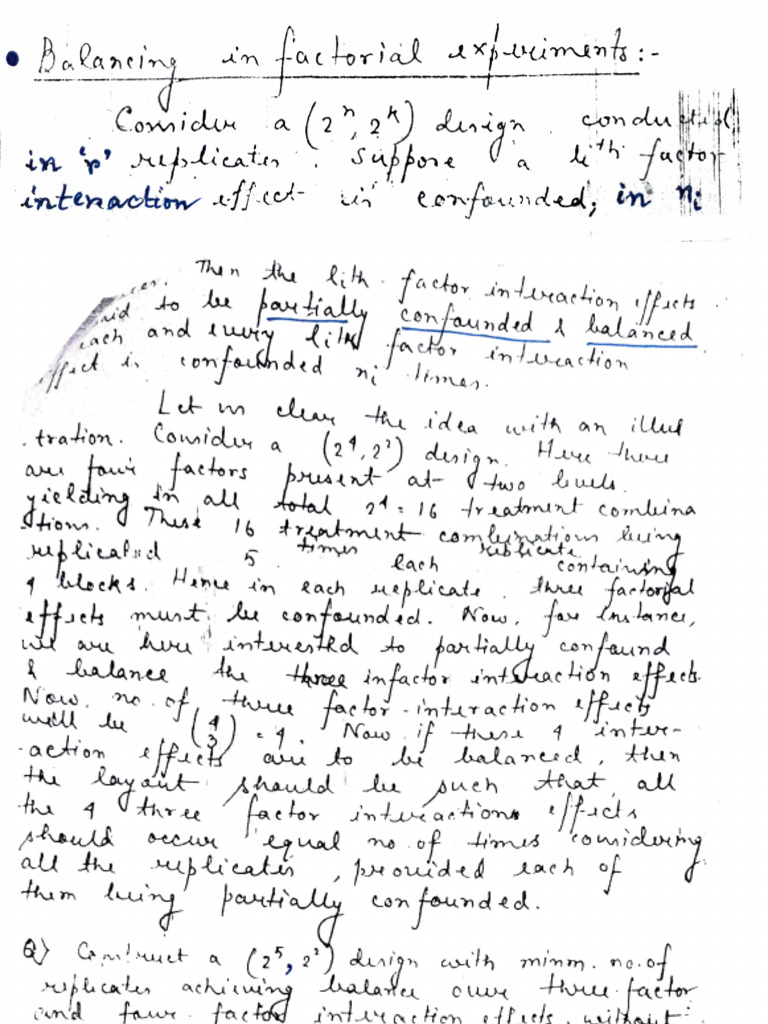 • Balancing in factorial experiments:-
Consider a (2^n, 2^k) design conducted
in 'r' replicates. Suppose a li^th factor
interaction effect is confounded, in n_i
Then the lith factor interaction effects
to be partially confounded & balanced
each and every lith factor interaction
effect is confounded n_i times.
Let us clear the idea with an illus
tration. Consider a (2^4, 2^2) design. Here there
are four factors present at two levels.
yielding in all total 2^4 = 16 treatment combina
tions. These 16 treatment combinations being
replicated 5 times each replicate containing
4 blocks. Hence in each replicate, three factorial
effects must be confounded. Now, for instance,
we are here interested to partially confound
& balance the three infactor interaction effects.
Now, no. of three factor-interaction effects
will be (4 3) = 4. Now if these 4 inter-
-action effects are to be balanced, then
the layout should be such that all
the 4 three factor interactions effects
should occur equal no. of times considering
all the replicates, provided each of
them being partially confounded.
Q) Construct a (2^5, 2^2) design with minm. no. of
replicates achieving balance over three factor
and four factor interaction effects without